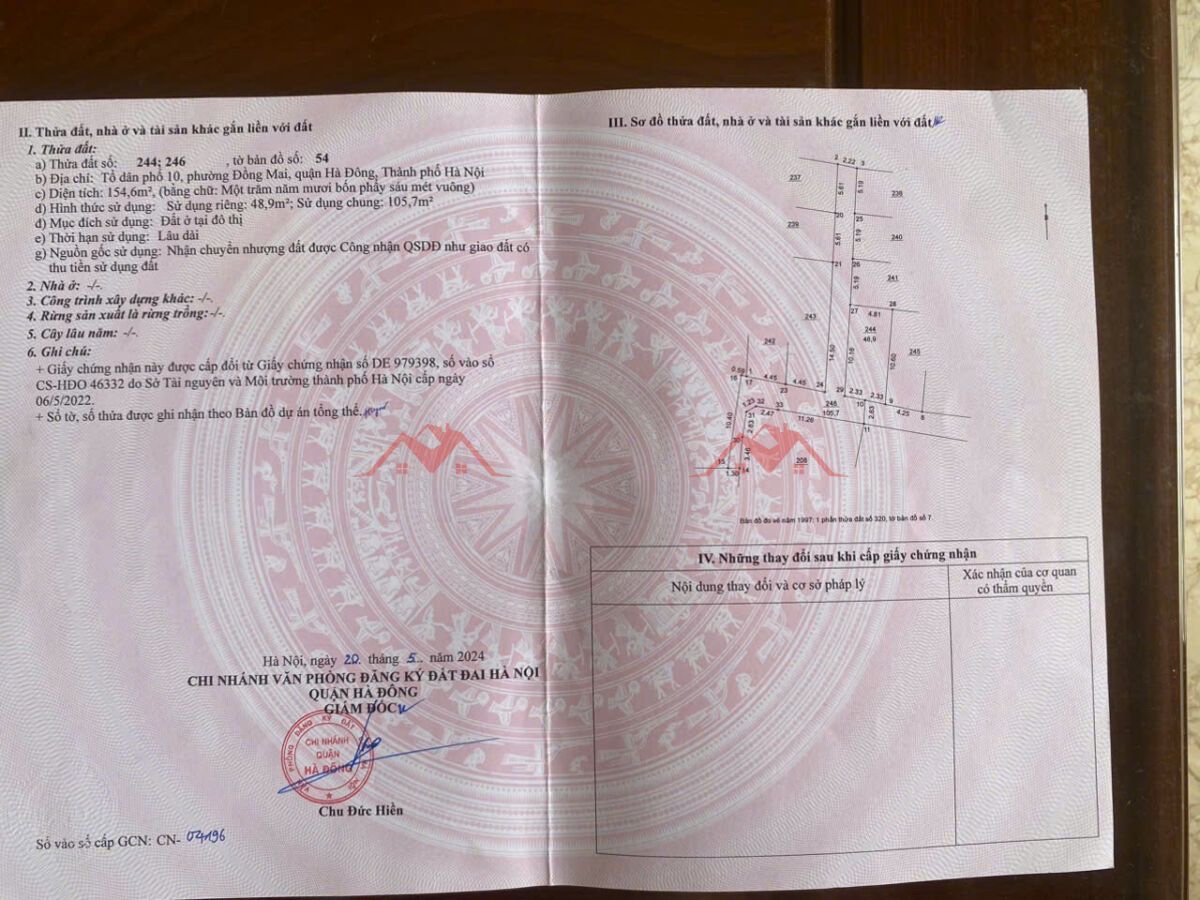 II. Thửa đất, nhà ở và tài sản khác gắn liền với đất
1. Thửa đất:
a) Thửa đất số: 244; 246 , tờ bản đồ số: 54
b) Địa chỉ: Tổ dân phố 10, phường Đồng Mai, quận Hà Đông, Thành phố Hà Nội
c) Diện tích: 154,6m², (bằng chữ: Một trăm năm mươi bốn phẩy sáu mét vuông)
d) Hình thức sử dụng: Sử dụng riêng: 48,9m²; Sử dụng chung: 105,7m²
đ) Mục đích sử dụng: Đất ở tại đô thị
e) Thời hạn sử dụng: Lâu dài
g) Nguồn gốc sử dụng: Nhận chuyển nhượng đất được Công nhận QSDĐ như giao đất có
thu tiền sử dụng đất
2. Nhà ở: -/-.
3. Công trình xây dựng khác: -/-.
4. Rừng sản xuất là rừng trồng:-/-.
5. Cây lâu năm: -/-.
6. Ghi chú:
+ Giấy chứng nhận này được cấp đổi từ Giấy chứng nhận số DE 979398, số vào sổ
CS-HĐO 46332 do Sở Tài nguyên và Môi trường thành phố Hà Nội cấp ngày
06/5/2022.
+ Số tờ, số thửa được ghi nhận theo Bản đồ dự án tổng thể.
Hà Nội, ngày 20. tháng 5.. năm 2024
CHI NHÁNH VĂN PHÒNG ĐĂNG KÝ ĐẤT ĐAI HÀ NỘI
QUẬN HÀ ĐÔNG
GIÁM ĐỐC
CHI NHÁNH
QUẬN
HÀ ĐÔNG
Chu Đức Hiền
Số vào sổ cấp GCN: CN- 04196
III. Sơ đồ thửa đất, nhà ở và tài sản khác gắn liền với đất
2 2.22 3
237
5.61 5.19
238
20 25
239
5.61 5.19
240
21 26
5.19
241
27 28
4.81
243
244
48,9
245
14.50 10.16 10.60
242
0.59 1
16 17
4.45
23
4.45
24
29 2.33 2.33 9
10
4.25
8
1.23 32
31 2.47 33
11.26
246
105,7
2.63
11
10.40
2.63
30
3.46
15
1.30 14
208
Bản đồ đo vẽ năm 1997: 1 phần thửa đất số 320, tờ bản đồ số 7.
IV. Những thay đổi sau khi cấp giấy chứng nhận
Nội dung thay đổi và cơ sở pháp lý
Xác nhận của cơ quan
có thẩm quyền